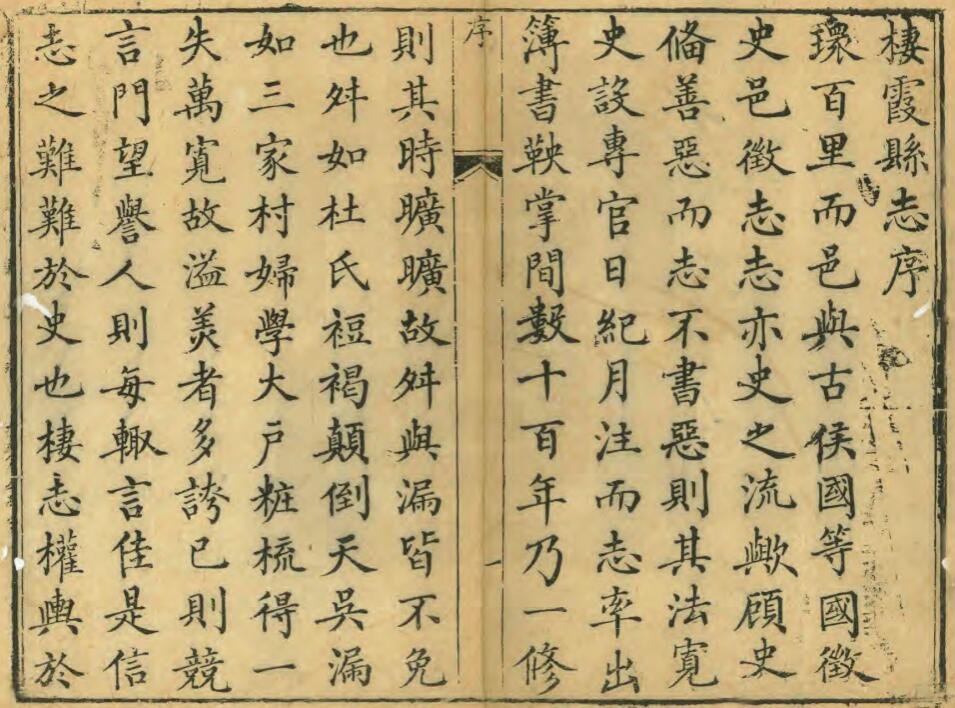 棲霞縣志序
環百里而邑與古侯國等國徵
史邑徵志志亦史之流歟顧史
俻善惡而志不書惡則其法寛
史設專官日紀月注而志率出
簿書鞅掌間數十百年乃一修
序
一
則其時曠曠故舛與漏皆不免
也舛如杜氏裋褐顛倒天吳漏
如三家村婦學大戶粧梳得一
失萬寛故溢美者多誇已則競
言門望譽人則每輙言佳是信
志之難難於史也棲志權輿於